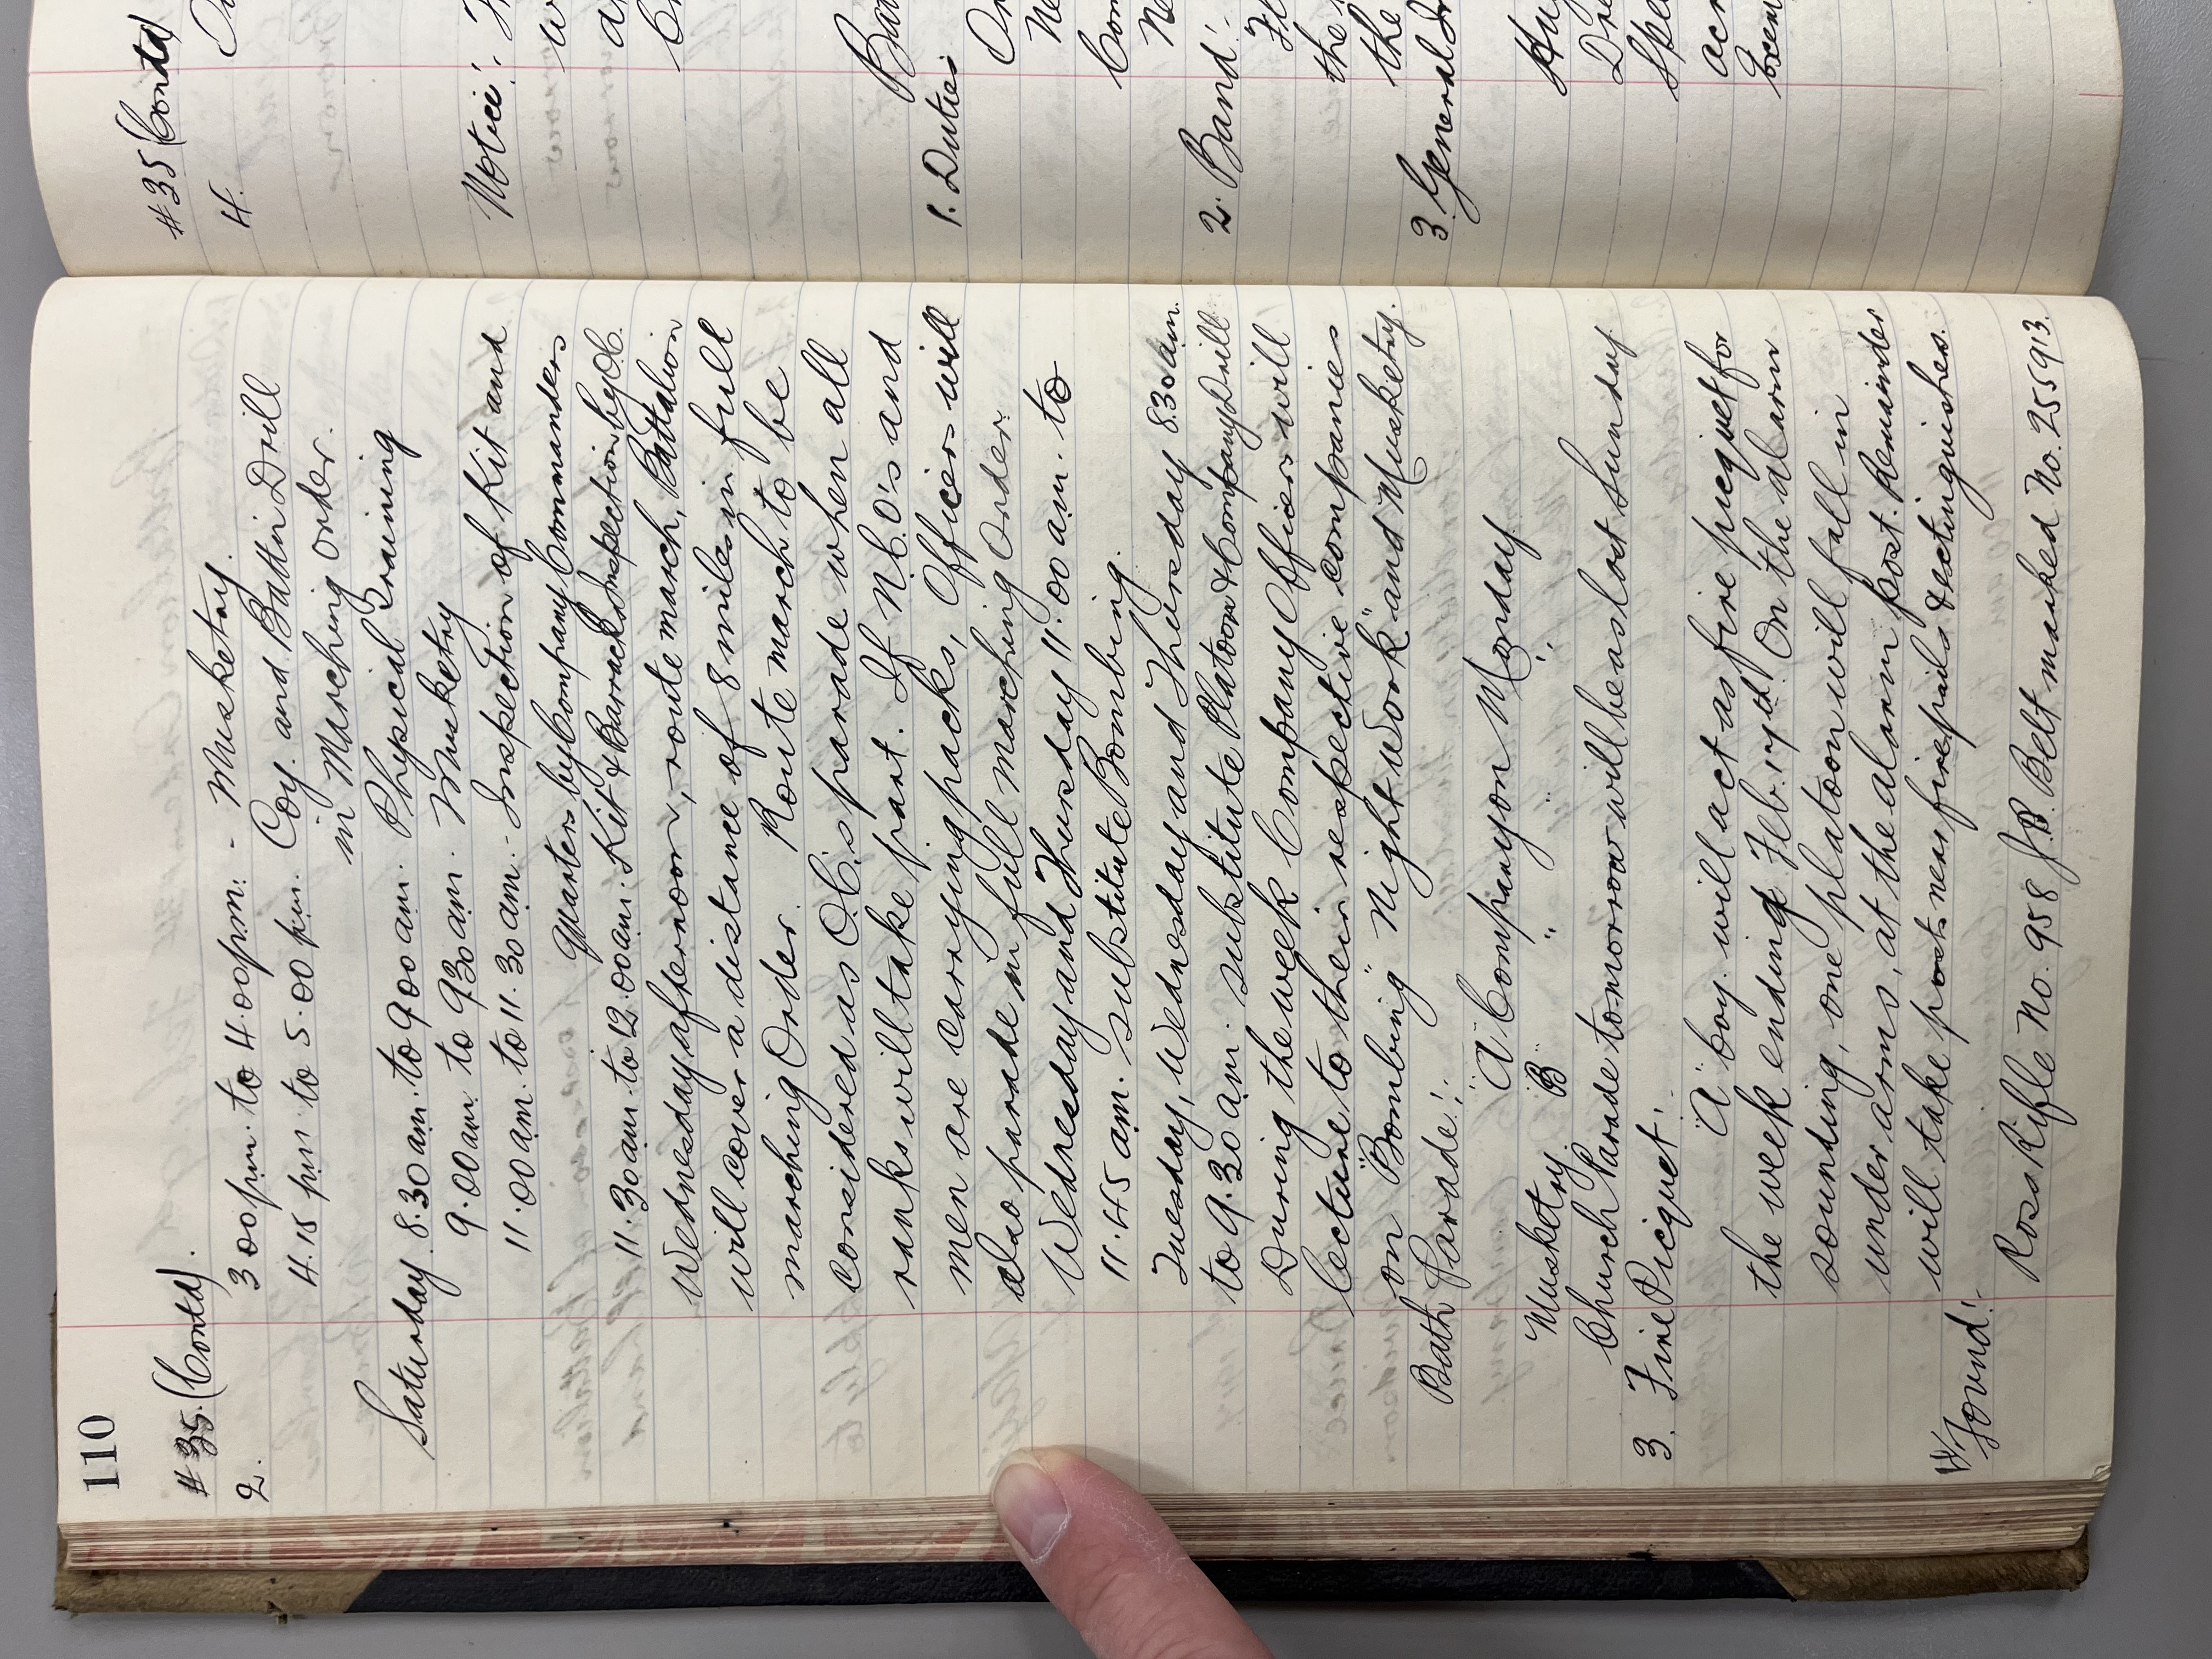 110
#35. (Contd).
2.
3 00 pm. to 4.00 pm. - Musketry.
4.15 pm to 5.00 pm. Coy. and Battn Drill
in Marching Order.
Saturday 8.30 am. to 9 00 am. Physical Training
9.00 am. to 9 30 am. Musketry
11.00 am. to 11.30 am. - Inspection of Kit and
Quarters by Company Commanders
11.30 am. to 12.00 am. Kit & Barracks Inspection by O.C.
Wednesday afternoon, route march, Battalion
will cover a distance of 8 miles in full
marching Order. Route march to be
considered as O.C.'s parade when all
ranks will take part. If N.C.O's and
men are carrying packs, Officers will
also parade in full marching Order.
Wednesday and Thursday 11.00 am. to
11.45 am. substitute Bombing.
Tuesday, Wednesday and Thursday 8.30 am.
to 9.30 am. substitute Platoon & Company Drill
During the week Company Officers will
lecture to their respective companies
on "Bombing" "Night Work" and Musketry.
Bath Parade:- "A" Company on Monday
Musketry. "B" " " "
Church Parade tomorrow will be as last Sunday
3. Fire Picquet.
"A" Coy. will act as fire picquet for
the week ending Feb. 17th. On the alarm
sounding, one platoon will fall in
under arms, at the alarm post. Remainder
will take posts near fire pails & extinguishers.
4. Found:-
Ross Rifle No. 958 J.B. Belt marked No. 255913.
#35 (Contd)
4.
Notice:-
1. Duties
2. Band:-
the
the
3 General